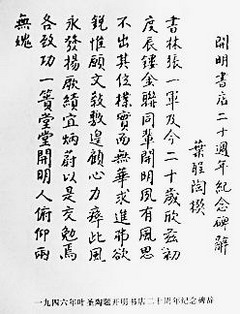 開明書店二十週年紀念碑辭
葉聖陶撰
書林張一軍及今二十歲欣茲初
度辰鏤金聯同輩開明夙有風思
不出其位樸實而無華求進弗欲
銳惟願文教敷遑顧心力瘁此風
永發揚厥績宜炳蔚以是交勉焉
各致功一簣堂堂開明人俯仰兩
無愧
一九四六年叶圣陶题开明书店二十周年纪念碑辞